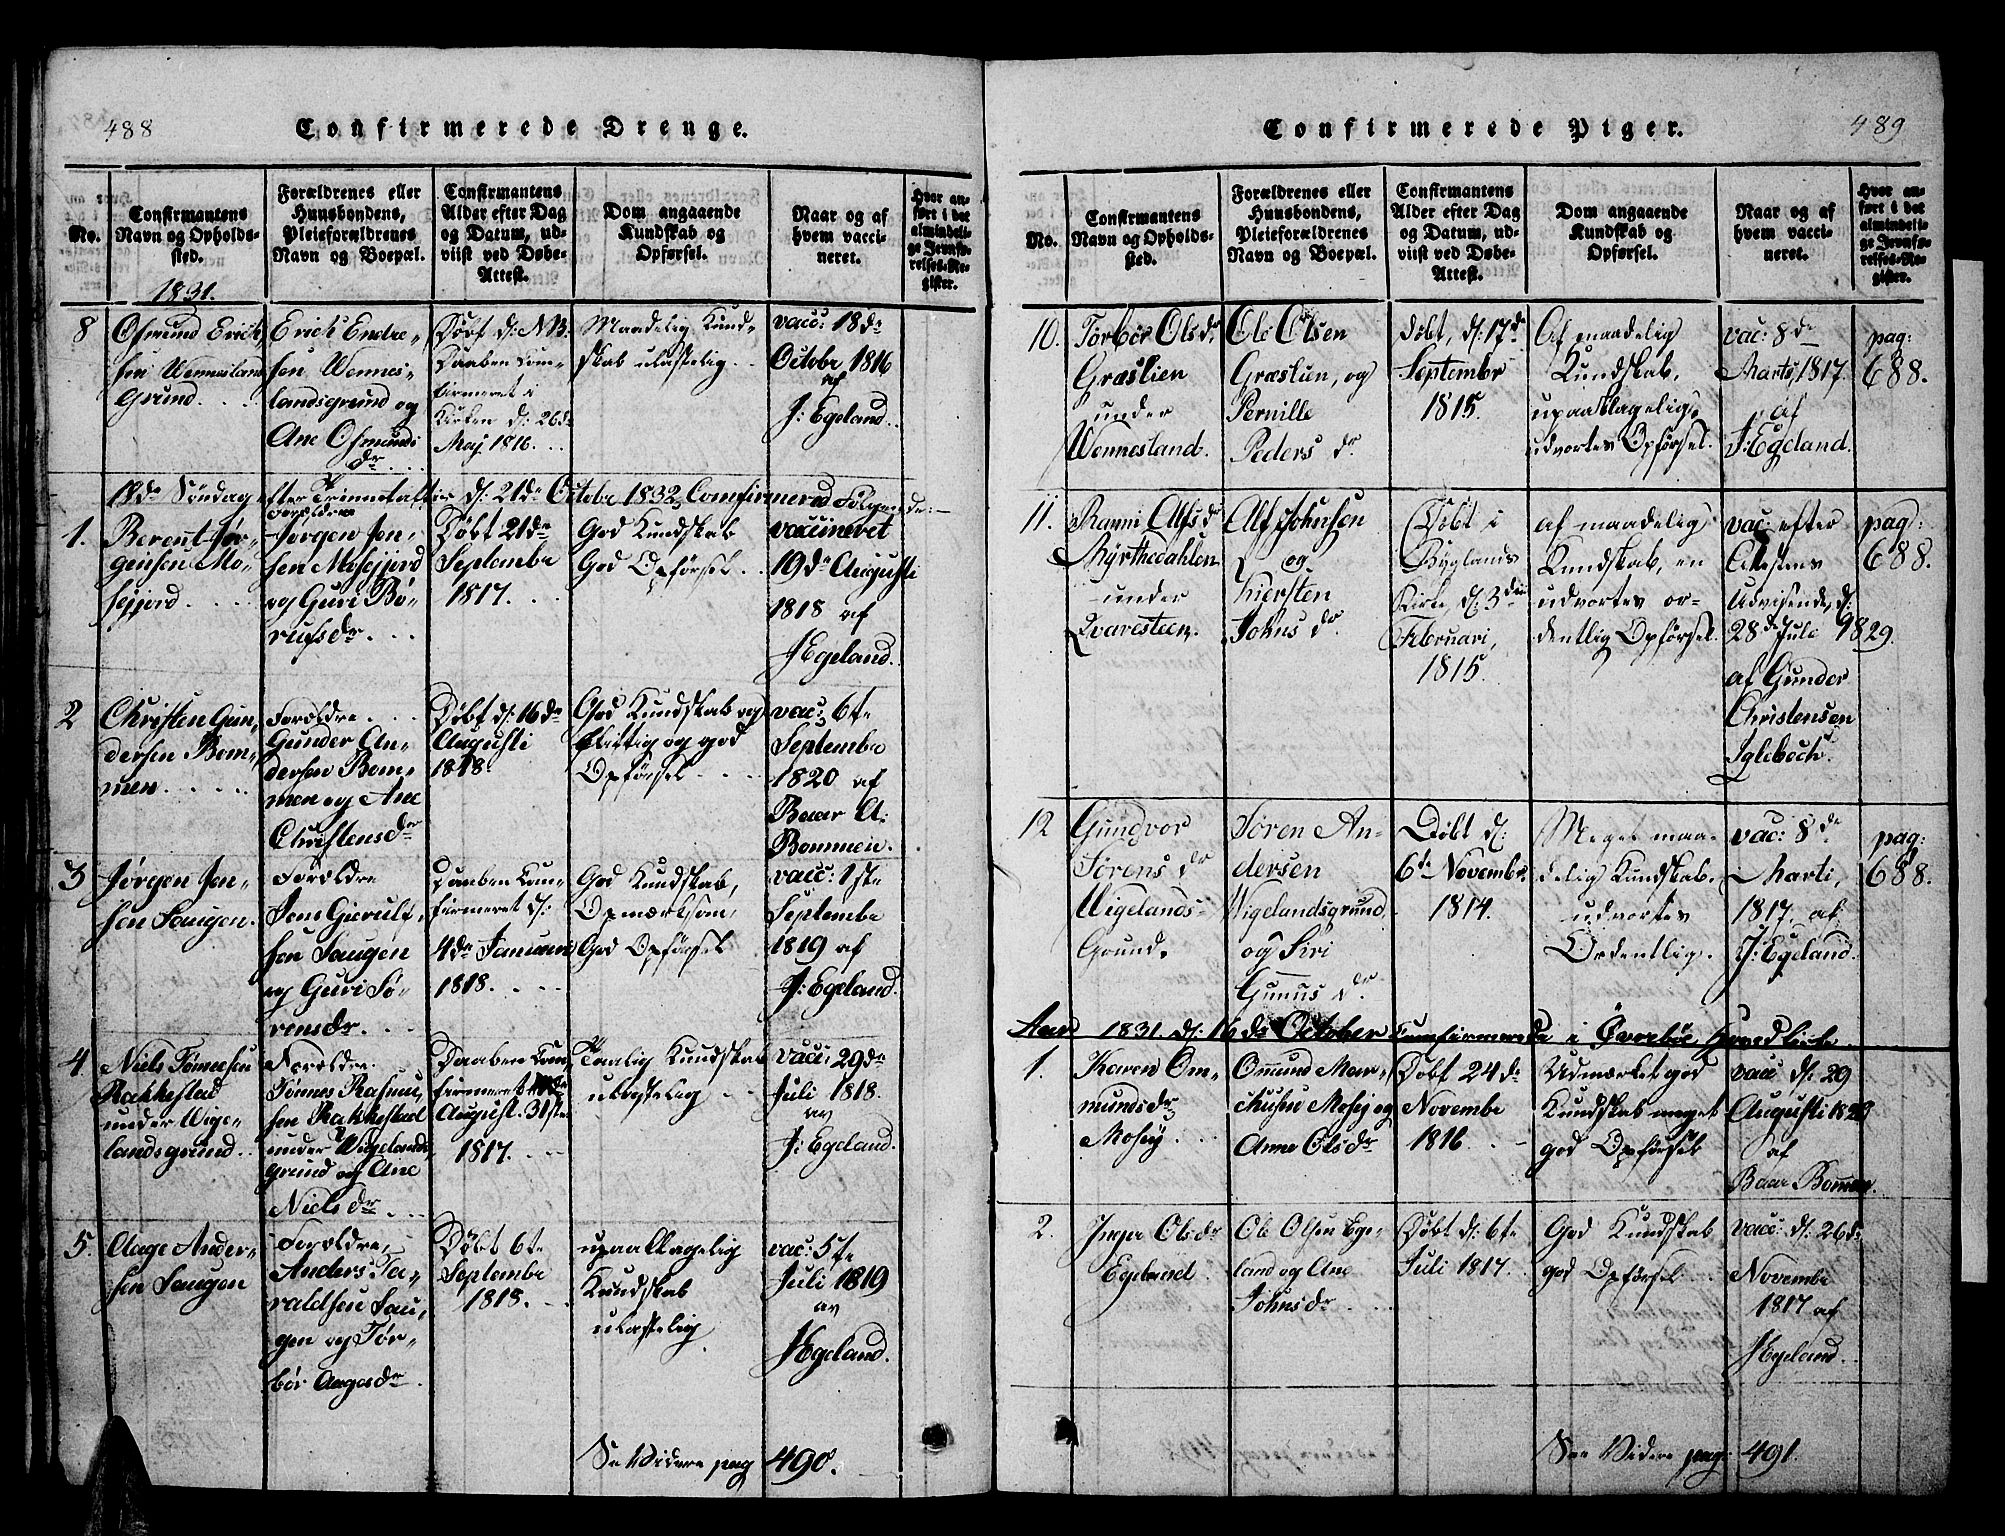 488
Confirmerede Drenge.
No.
Confirmantens
Navn og Opholds-
sted.
1831.
Forældrenes eller
Huusbondens,
Pleieforældrenes
Navn og Boepæl.
Confirmantens
Alder efter Dag
og Datum, ud-
viist ved Døbe-
Attest.
Dom angaaende
Kundskab og
Opførsel.
Naar og af
hvem vacci-
neret.
Hvor an-
ført i det
almindeli-
ge Jevnfø-
relses-Re-
gister.
8
Osmund Erich-
sen Wennesland
Grund.
Erich Endre-
sen Wennes-
landsgrund og
Ane Osmunds
dr
Døbt d: NB.
Daaben Con-
firmeret i
Kirken d: 26de
Maj 1816.
Maadelig Kund-
skab ulastelig.
vacc: 18de
Octobr 1816
af
J: Egeland.
18de Søndag efter Trinnitatis d: 21de Octobr 1832 Confirmered Følgende:
1.
Berent Jør-
gensen Mo-
sejord.
Forældre
Jørgen Jen-
sen Mosejord
og Guri Bø-
rufsdr.
Døbt 21de
Septembr
1817.
God Kundskab
God Opførsel.
vaccineret
19de Augusti
1818 af
J Egeland.
2
Christen Gun-
dersen Bom-
men.
Forældre.
Gunder An-
dersen Bom-
men og Ane
Christensdr
Døbt d: 16de
Augusti
1818.
God Kundskab og
flittig og god
Opførsel.
vac: 6te
Septembr
1820 af
Baar A:
Bommen.
3
Jørgen Jen-
sen Saugen.
Forældre
Jens Gierulf-
sen Saugen
og Guri Sø-
rensdr.
Daaben Con-
firmeret d:
4de Januari
1818.
God Kundskab,
Opmærksom,
God Opførsel
vacc: 1ste
Septembr
1819 af
J: Egeland.
4
Niels Tønnesen
Rakkestad
under Wige-
landsgrund.
Forældre.
Tønnes Rasmu-
sen Rakkestad
under Wigelands
grund og Ane
Niels dr.
Daaben Con-
firmeret
August. 31ste
1817.
Taalig Kundskab
ulastelig
vacc: 29de
Juli 1818.
av
J: Egeland.
5.
Aage Ander-
sen Saugen
Forældre,
Anders Ta-
raldsen Sau-
gen og Tør-
bør Aagesdr.
Døbt 6te
Septembr
1818.
upaaklagelig
Kundskab
ulastelig
vac: 5te
Juli 1819
av
J Egeland.
Se Videre pag 490.
489
Confirmerede Piger.
No.
Confirmantens
Navn og Opholds-
sted.
Forældrenes eller
Huusbondens,
Pleieforældrenes
Navn og Boepæl.
Confirmantens
Alder efter Dag
og Datum, ud-
viist ved Døbe-
Attest.
Dom angaaende
Kundskab og
Opførsel.
Naar og af
hvem vacci-
neret.
Hvor an-
ført i det
almindeli-
ge Jevnfø-
relses-Re-
gister.
10.
Torbør Ols dr
Græslien
under
Wennesland.
Ole Olsen
Græslien, og
Pernille
Peders dr
Døbt, d: 17de
Septembr
1815.
Af maadelig
Kundskab,
upaaklagelig,
udvortes Opførsel.
vac: 8de
Marts 1817.
af
J: Egeland.
pag:
688.
11.
Ravni Alfs dr
Myrthedahlen
under
Qvaresteen.
Alf Johnsen
og
Kiersten
Johns dr
Døbt i
Byglands
Kirke, d: 3die
Februari,
1815.
af maadelig
Kundskab, en
udvortes or-
dentlig Opførsel.
vac: efter
Attestens
Udvisende, d:
28de Juli 1829.
af Gunder
Christensen
Iglebech.
pag:
688.
12
Gundvor
Sørens dr
Wigelands-
Grund.
Søren An-
dersen
Wigelandsgrund
og Siri
Gunus dr.
Døbt d:
6te Novembr.
1814.
Meget maa-
delig Kundskab.
udvortes
Ordentlig.
vac: 8de
Marti,
1817. af
J: Egeland.
pag:
688.
Aar 1831. d: 16de October Confirmerede i Øvrebøe Hovedkirke
1.
Karen Om-
mundsdr
Mosey
Ommund Mar-
kusen Mosey og
Anne Olsdr
Døbt 24de
Novembr
1816
Udmærket god
Kundskab meget
god Opførsel
vacc d: 29
Augusti 1823
af
Baar Bommen.
2.
Inger Olsdr
Egeland
Ole Olsen Ege-
land og Ane
Johnsdr
Døbt d: 6te
Juli 1817.
God Kundskab
god Opførsel
vacc: d: 26de
Novembr
1817 af
J Egeland
See Videre pag: 491.